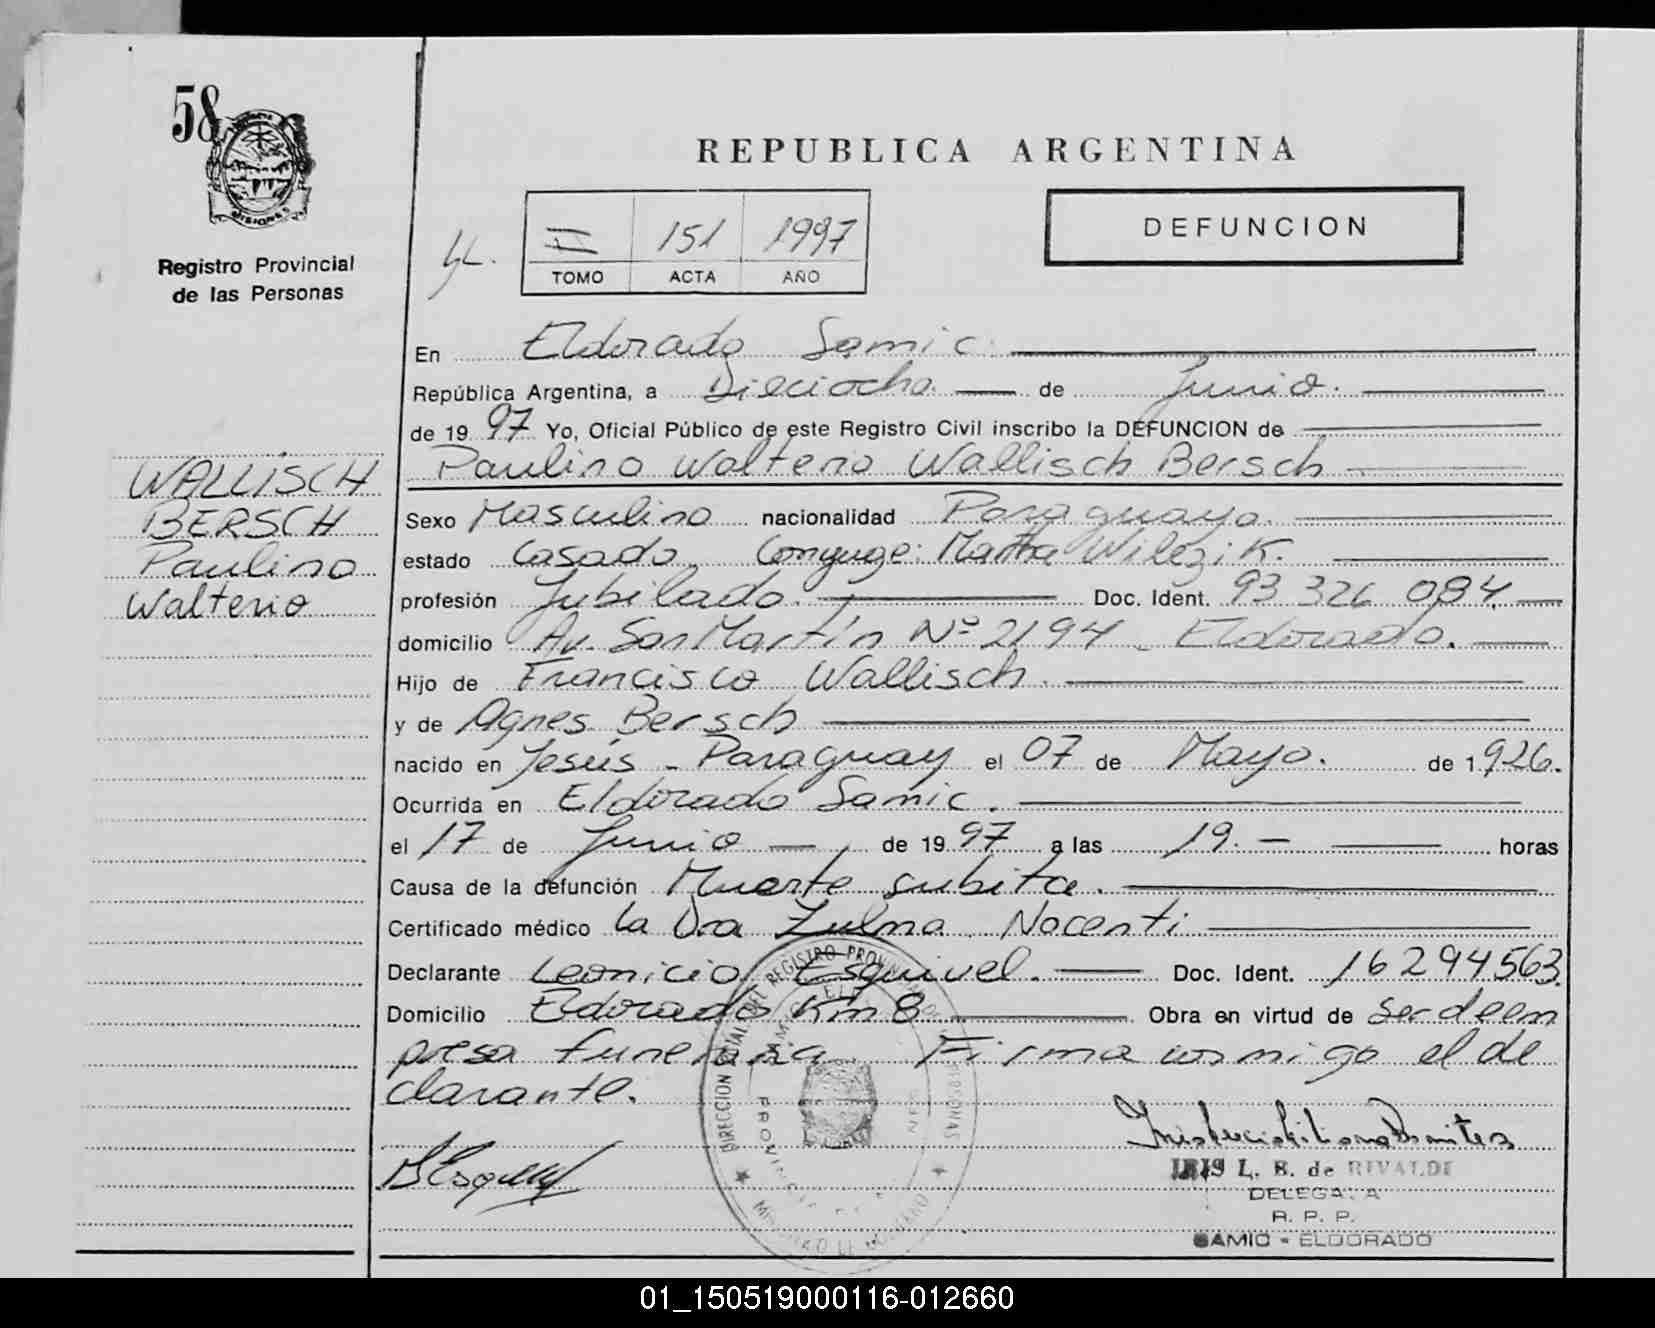 58
MISIONES
Registro Provincial
de las Personas
REPUBLICA ARGENTINA
II 151 1997
TOMO ACTA AÑO
DEFUNCION
En Eldorado Samic.
República Argentina, a Dieciocho. de Junio.
de 19 97 Yo, Oficial Público de este Registro Civil inscribo la DEFUNCION de
Paulino Walterio Wallisch Bersch
WALLISCH
BERSCH
Paulino
Walterio
Sexo Masculino nacionalidad Paraguaya.
estado Casado. Conyuge: Martha Wilezik.
profesión Jubilado. Doc. Ident. 93 326 084
domicilio Av. San Martín Nº 2194 - Eldorado.
Hijo de Francisco Wallisch.
y de Agnes Bersch
nacido en Jesús - Paraguay el 07 de Mayo. de 1926.
Ocurrida en Eldorado Samic.
el 17 de Junio de 19 97 a las 19.- horas
Causa de la defunción Muerte subita.
Certificado médico la Dra Zulma Nocenti
Declarante Leonicio Esquivel. Doc. Ident. 16294563.
Domicilio Eldorado Km 8 Obra en virtud de ser de em
presa funeraria Firma conmigo el de
clarante.
DIRECCION DEL REGISTRO PROVINCIAL DE LAS PERSONAS
IRIS L. B. de RIVALDI
DELEGADA
R. P. P.
SAMIC - ELDORADO
01_150519000116-012660